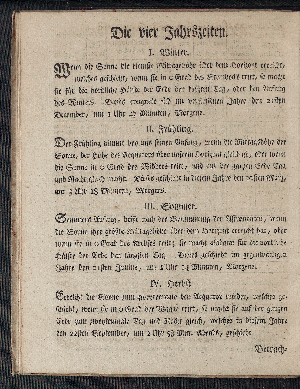 Die vier Jahrszeiten.
I. Winter.
Wenn die Sonne die kleinste Mittagshöhe über dem Horizont erreicht,
welches geschieht, wenn sie in 0 Grad des Steinbocks tritt, so macht
sie für die nördliche Hälfte der Erde den kürzesten Tag, oder den Anfang
des Winters. Dieses ereignete sich im verflossenen Jahre den 21sten
December, um 1 Uhr Minuten, Morgens.
II. Frühling.
Der Frühling nimmt bey uns seinen Anfang, wenn die Mittagshöhe der
Sonne, der Höhe des Aequators über unserm Horizont gleich ist, oder wenn
die Sonne in 0 Grad des Widders tritt; und um der ganzen Erde Tag
und Nacht gleich macht. Dieses geschieht in diesem Jahre den März,
um Uhr 18 Minuten, Morgens.
III. Sommer.
Sommers Anfang, heißt nach der Bestimmung der Astronomen, wenn
die Sonne ihre größte Mittagshöhe über dem Horizont erreicht hat, oder
wenn sie in 0 Grad des Krebses tritt; sie macht alsdann für die nördliche
Hälfte der Erde den längsten Tag. Dieses geschieht im gegenwärtigen
Jahre den 21sten Junius, um Uhr 14 Minuten, Morgens.
IV. Herbst.
Erreicht die Sonne zum zweytenmale den Aequator wieder, welches ge-
schieht, wenn sie in 0 Grad der Waage tritt, so macht sie auf der ganzen
Erde zum zweytenmale Tag und Nacht gleich, welches in diesem Jahre
den 22sten September, um 2 Uhr 53 Min. Abends, geschieht.